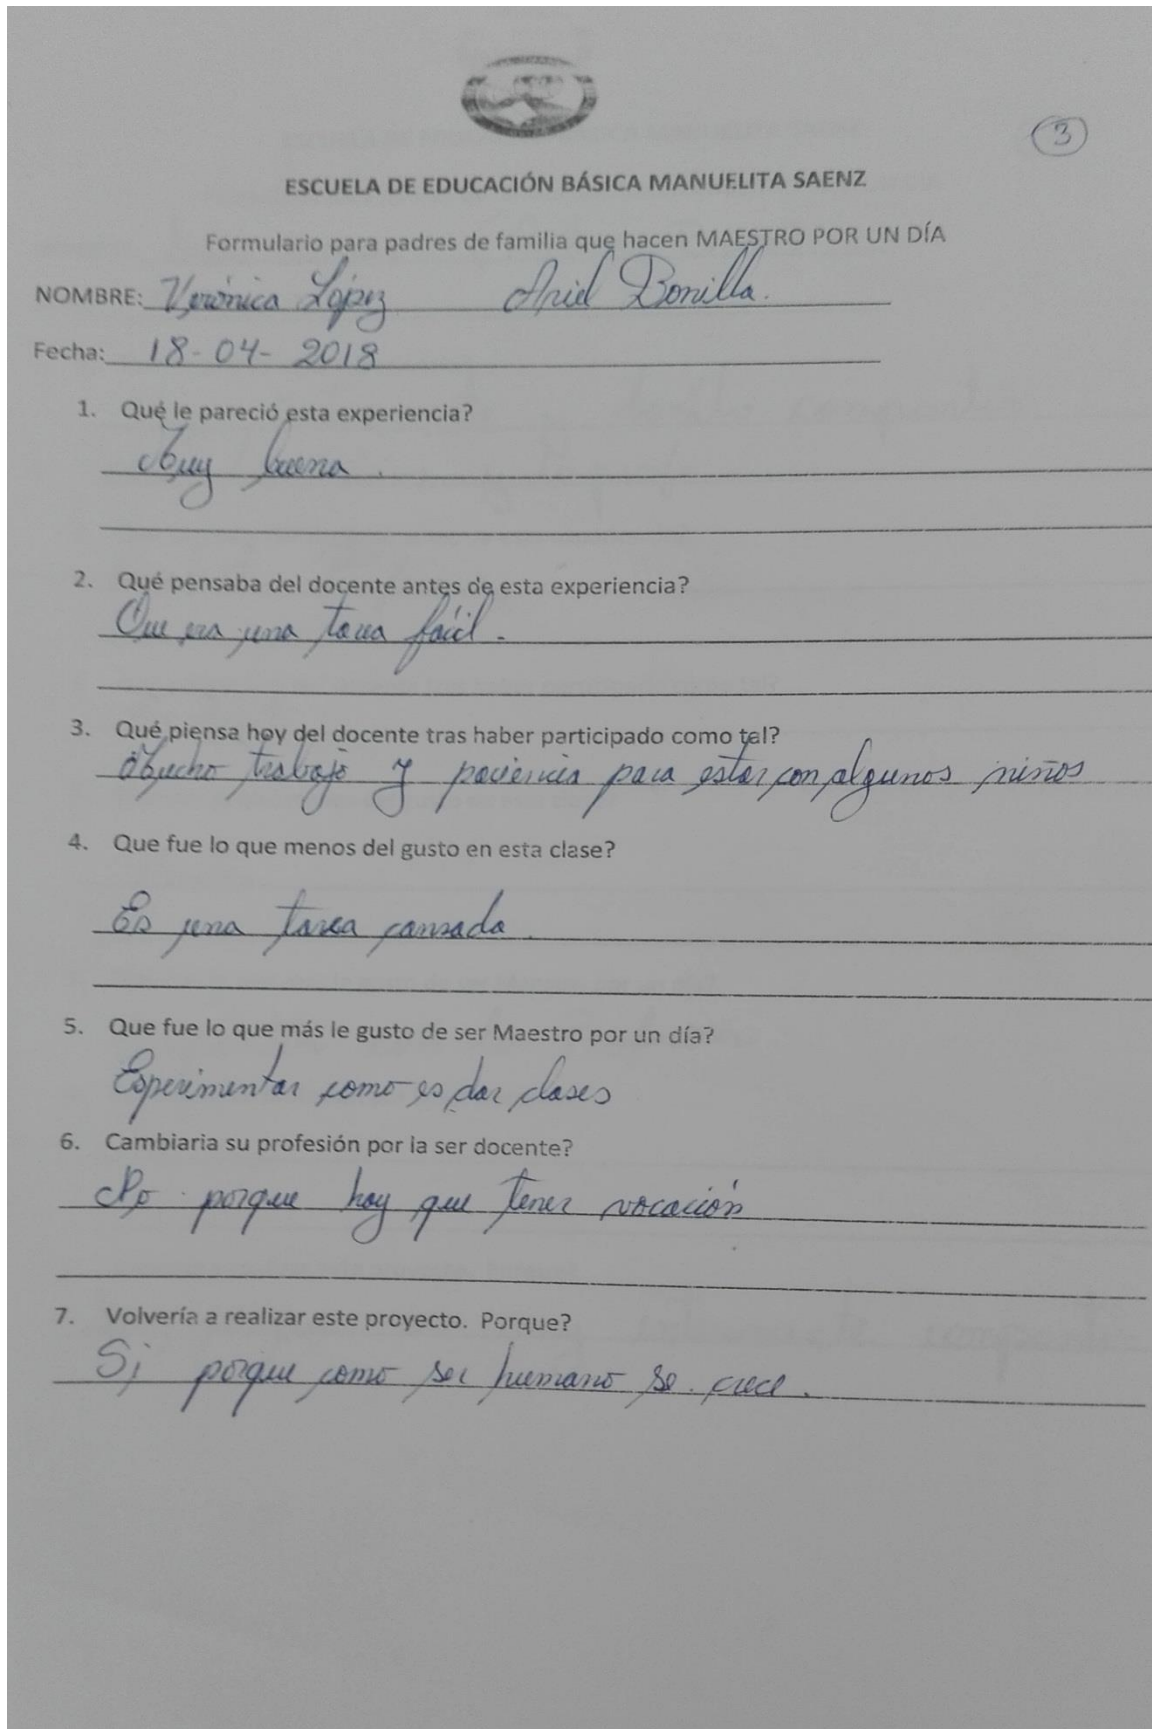 3
ESCUELA DE EDUCACIÓN BÁSICA MANUELITA SAENZ
Formulario para padres de familia que hacen MAESTRO POR UN DÍA
NOMBRE: Verónica López Ariel Bonilla.
Fecha: 18-04-2018
1. Qué le pareció esta experiencia?
Muy buena.
2. Qué pensaba del docente antes de esta experiencia?
Que era una tarea fácil.
3. Qué piensa hoy del docente tras haber participado como tal?
Mucho trabajo y paciencia para estar con algunos niños
4. Que fue lo que menos del gusto en esta clase?
Es una tarea cansada.
5. Que fue lo que más le gusto de ser Maestro por un día?
Experimentar como es dar clases
6. Cambiaria su profesión por la ser docente?
No porque hay que tener vocación
7. Volvería a realizar este proyecto. Porque?
Si porque como ser humano se crece.